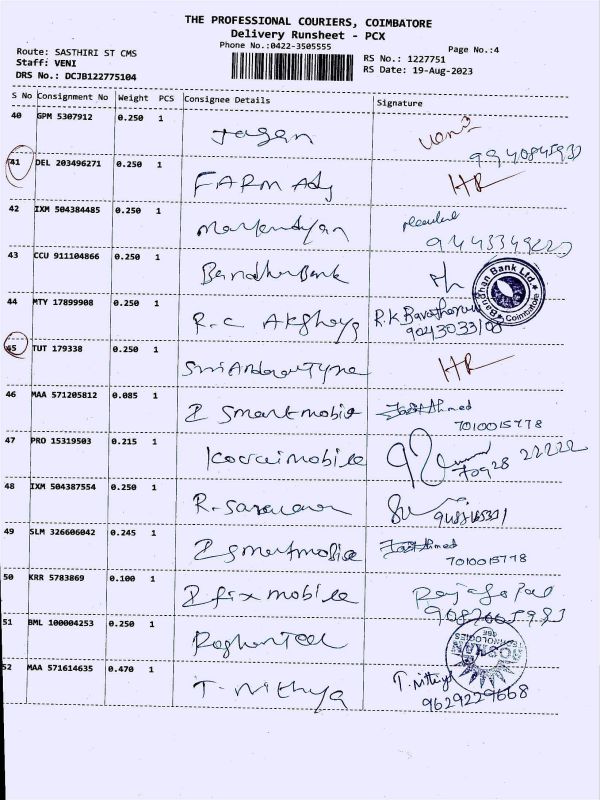 THE PROFESSIONAL COURIERS, COIMBATORE
Delivery Runsheet - PCX
Phone No.:0422-3505555
Page No.:4
Route: SASTHIRI ST CMS
Staff: VENI
DRS No.: DCJB122775104
RS No.: 1227751
RS Date: 19-Aug-2023
S No Consignment No Weight PCS Consignee Details Signature
40 GPM 5307912 0.250 1 Jagan
41 DEL 203496271 0.250 1 FARM Ady HR
42 IXM 504384485 0.250 1
43 CCU 911104866 0.250 1 Bandhan Bank
Bandhan Bank Ltd. Coimbatore
44 MTY 17899908 0.250 1 R.C Akshaya
45 TUT 179338 0.250 1 HR
46 MAA 571205812 0.085 1 I smart mobile
7010015778
47 PRO 15319503 0.215 1 Kovai mobile
48 IXM 504387554 0.250 1 R. Saravanan
49 SLM 326606042 0.245 1 I smart mobile
7010015778
50 KRR 5783869 0.100 1 I fix mobile Rajagopal
51 BML 100004253 0.250 1 Roshan Tech
ROSHAN TECHNOLOGIES CBE
52 MAA 571614635 0.470 1 T. Nithya T. Nithya
9629229668